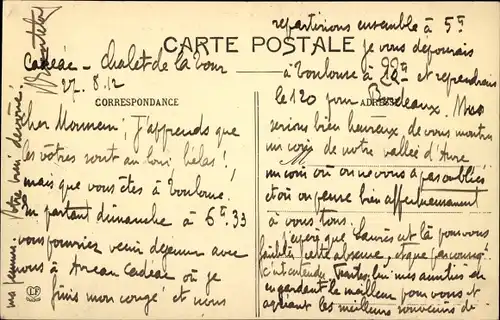 CARTE POSTALE
CORRESPONDANCE
ADRESSE
Cadéac - chalet de la Tour
27. 8. 12
Cher Monsieur, J'apprends que
les vôtres sont au loin hélas!
mais que vous êtes à Toulouse.
En partant dimanche à 6h.33
vous pourriez venir déjeuner avec
nous à Arreau Cadéac où je
finis mon congé et nous
repartirions ensemble à 5h
je vous déposerais
à Toulouse à 22h et reprendrais
le 120 pour Bordeaux. Nous
serions bien heureux, de vous montrer
un coin de notre vallée d'Aure
un coin où on ne vous a pas oubliés
et où on pense bien affectueusement
à vous tous.
J'espère que
est là pouvons
cette absence, et que
mes amitiés en
gardant le meilleur pour vous et
agréant les meilleurs souvenirs de
ma femme. Votre bien dévoué
LF